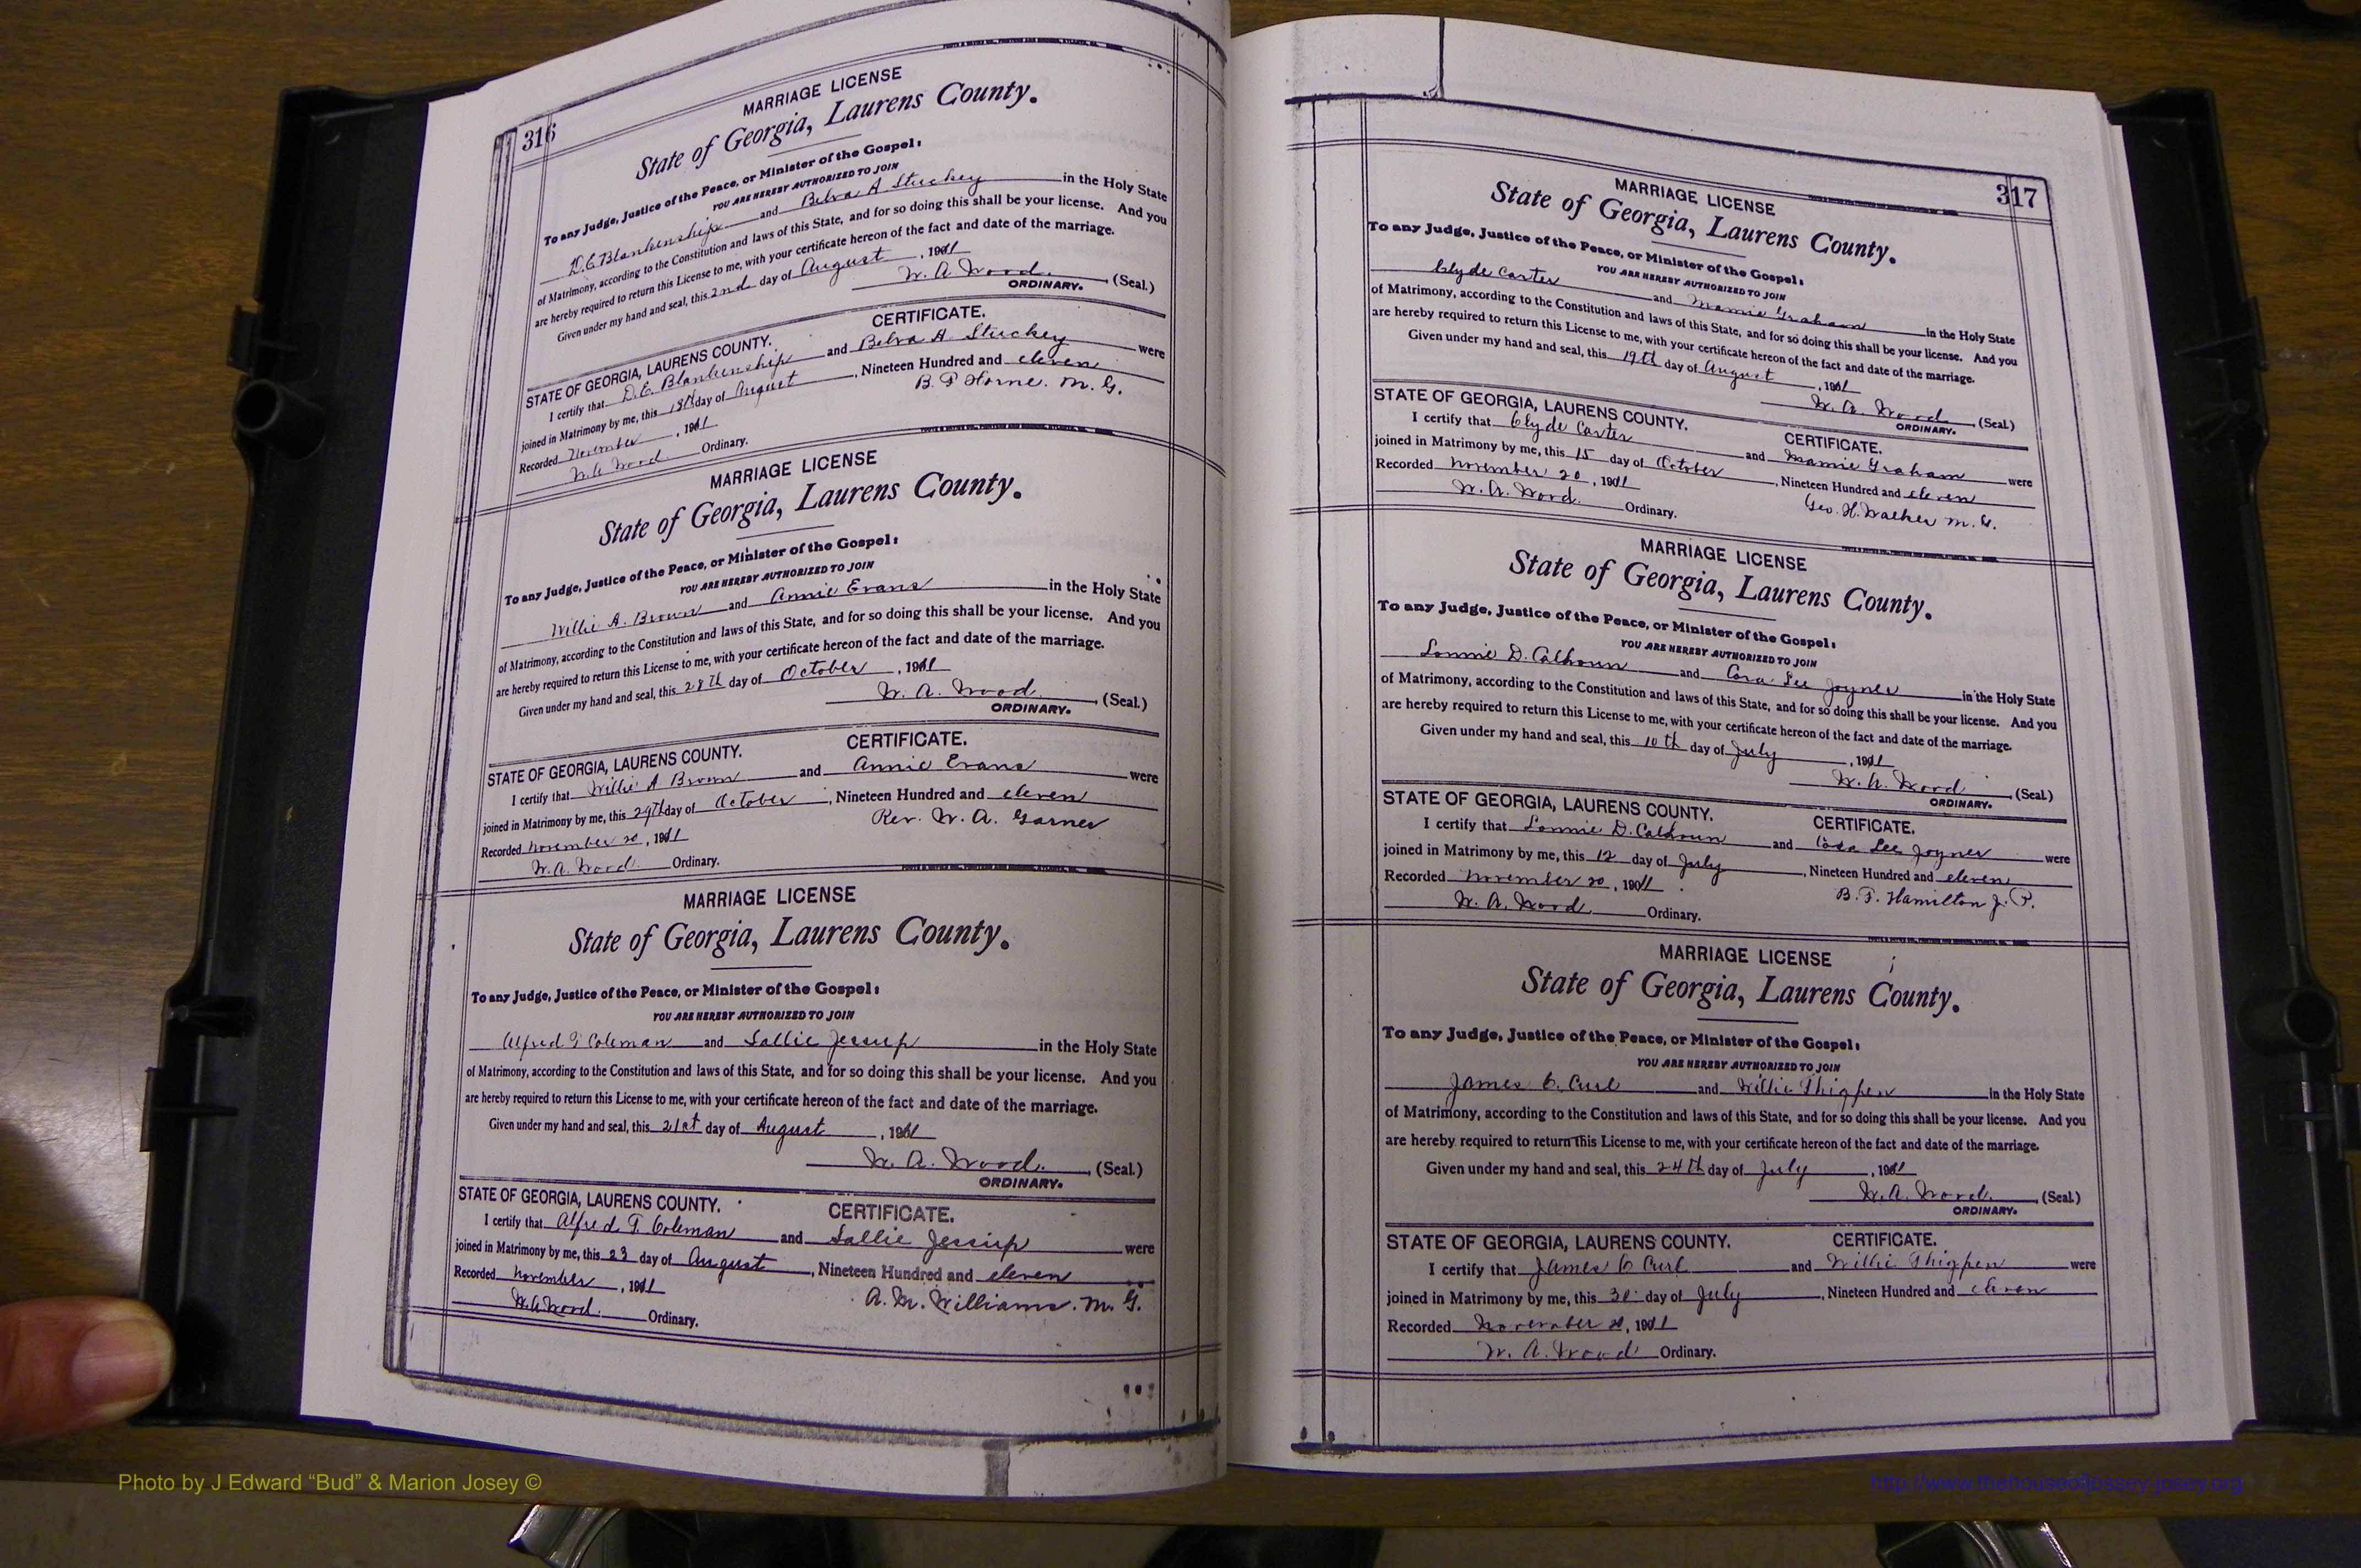 316
MARRIAGE LICENSE
State of Georgia, Laurens County.
To any Judge, Justice of the Peace, or Minister of the Gospel:
YOU ARE HEREBY AUTHORIZED TO JOIN
D.E. Blankenship and Belva A Stuckey in the Holy State
of Matrimony, according to the Constitution and laws of this State, and for so doing this shall be your license. And you
are hereby required to return this License to me, with your certificate hereon of the fact and date of the marriage.
Given under my hand and seal, this 2nd day of August, 1911
W. A. Wood. (Seal.)
ORDINARY.
STATE OF GEORGIA, LAURENS COUNTY. CERTIFICATE.
I certify that D.E. Blankenship and Belva A. Stuckey were
joined in Matrimony by me, this day of August, Nineteen Hundred and eleven
Recorded November, 1911 B. P. Horne. M. G.
W A Wood. Ordinary.
MARRIAGE LICENSE
State of Georgia, Laurens County.
To any Judge, Justice of the Peace, or Minister of the Gospel:
YOU ARE HEREBY AUTHORIZED TO JOIN
Willie A. Brown and Annie Evans in the Holy State
of Matrimony, according to the Constitution and laws of this State, and for so doing this shall be your license. And you
are hereby required to return this License to me, with your certificate hereon of the fact and date of the marriage.
Given under my hand and seal, this 28th day of October, 1911
W. A. Wood. (Seal.)
ORDINARY.
STATE OF GEORGIA, LAURENS COUNTY. CERTIFICATE.
I certify that Willie A Brown and Annie Evans were
joined in Matrimony by me, this 29th day of October, Nineteen Hundred and eleven
Recorded November 20, 1911 Rev. W. A. Garner
W. A. Wood. Ordinary.
MARRIAGE LICENSE
State of Georgia, Laurens County.
To any Judge, Justice of the Peace, or Minister of the Gospel:
YOU ARE HEREBY AUTHORIZED TO JOIN
Alfred T Coleman and Sallie Jessup in the Holy State
of Matrimony, according to the Constitution and laws of this State, and for so doing this shall be your license. And you
are hereby required to return this License to me, with your certificate hereon of the fact and date of the marriage.
Given under my hand and seal, this 21st day of August, 1911
W. A. Wood. (Seal.)
ORDINARY.
STATE OF GEORGIA, LAURENS COUNTY. CERTIFICATE.
I certify that Alfred T. Coleman and Sallie Jessup were
joined in Matrimony by me, this 23 day of August, Nineteen Hundred and eleven
Recorded November, 1911 A. M. Williams. M. G.
W. A Wood. Ordinary.
317
MARRIAGE LICENSE
State of Georgia, Laurens County.
To any Judge, Justice of the Peace, or Minister of the Gospel:
YOU ARE HEREBY AUTHORIZED TO JOIN
Clyde Carter and Mamie Graham in the Holy State
of Matrimony, according to the Constitution and laws of this State, and for so doing this shall be your license. And you
are hereby required to return this License to me, with your certificate hereon of the fact and date of the marriage.
Given under my hand and seal, this 19th day of August, 1911
W. A. Wood (Seal.)
ORDINARY.
STATE OF GEORGIA, LAURENS COUNTY. CERTIFICATE.
I certify that Clyde Carter and Mamie Graham were
joined in Matrimony by me, this 15 day of October, Nineteen Hundred and eleven
Recorded November 20, 1911 Geo. H. Walker M. G.
W. A. Wood. Ordinary.
MARRIAGE LICENSE
State of Georgia, Laurens County.
To any Judge, Justice of the Peace, or Minister of the Gospel:
YOU ARE HEREBY AUTHORIZED TO JOIN
Lonnie D. Calhoun and Cora Lee Joyner in the Holy State
of Matrimony, according to the Constitution and laws of this State, and for so doing this shall be your license. And you
are hereby required to return this License to me, with your certificate hereon of the fact and date of the marriage.
Given under my hand and seal, this 10th day of July, 1911
W. A. Wood (Seal.)
ORDINARY.
STATE OF GEORGIA, LAURENS COUNTY. CERTIFICATE.
I certify that Lonnie D. Calhoun and Cora Lee Joyner were
joined in Matrimony by me, this 12 day of July, Nineteen Hundred and eleven
Recorded November 20, 1911 B. F. Hamilton J. P.
W. A. Wood. Ordinary.
MARRIAGE LICENSE
State of Georgia, Laurens County.
To any Judge, Justice of the Peace, or Minister of the Gospel:
YOU ARE HEREBY AUTHORIZED TO JOIN
James C. Curl and Willie Thigpen in the Holy State
of Matrimony, according to the Constitution and laws of this State, and for so doing this shall be your license. And you
are hereby required to return this License to me, with your certificate hereon of the fact and date of the marriage.
Given under my hand and seal, this 24th day of July, 1911
W. A. Wood. (Seal.)
ORDINARY.
STATE OF GEORGIA, LAURENS COUNTY. CERTIFICATE.
I certify that James C Curl and Willie Thigpen were
joined in Matrimony by me, this 30 day of July, Nineteen Hundred and eleven
Recorded November 20, 1911
W. A. Wood Ordinary.
Photo by J Edward “Bud” & Marion Josey ©
http://www.thehouseofjossey-josey.org